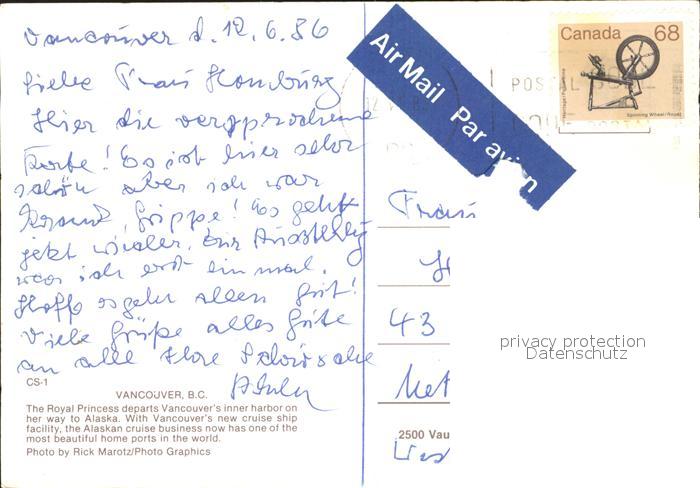 Vancouver d. 12.6.86
Liebe Frau Homburg
Hier die versprochene
Karte! Es ist hier sehr
schön aber ich war
krank, Grippe! Es geht
jetzt wieder. Zur Ausstellung
war ich erst einmal.
Hoffe es geht allen gut!
Viele Grüße alles Gute
an alle Ihre
CS-1
VANCOUVER, B.C.
The Royal Princess departs Vancouver's inner harbor on
her way to Alaska. With Vancouver's new cruise ship
facility, the Alaskan cruise business now has one of the
most beautiful home ports in the world.
Photo by Rick Marotz/Photo Graphics
Air Mail Par avion
Canada 68
Spinning Wheel/Rouet
POSTAL CODE
Frau
H
43
2500 Vau
privacy protection
Datenschutz